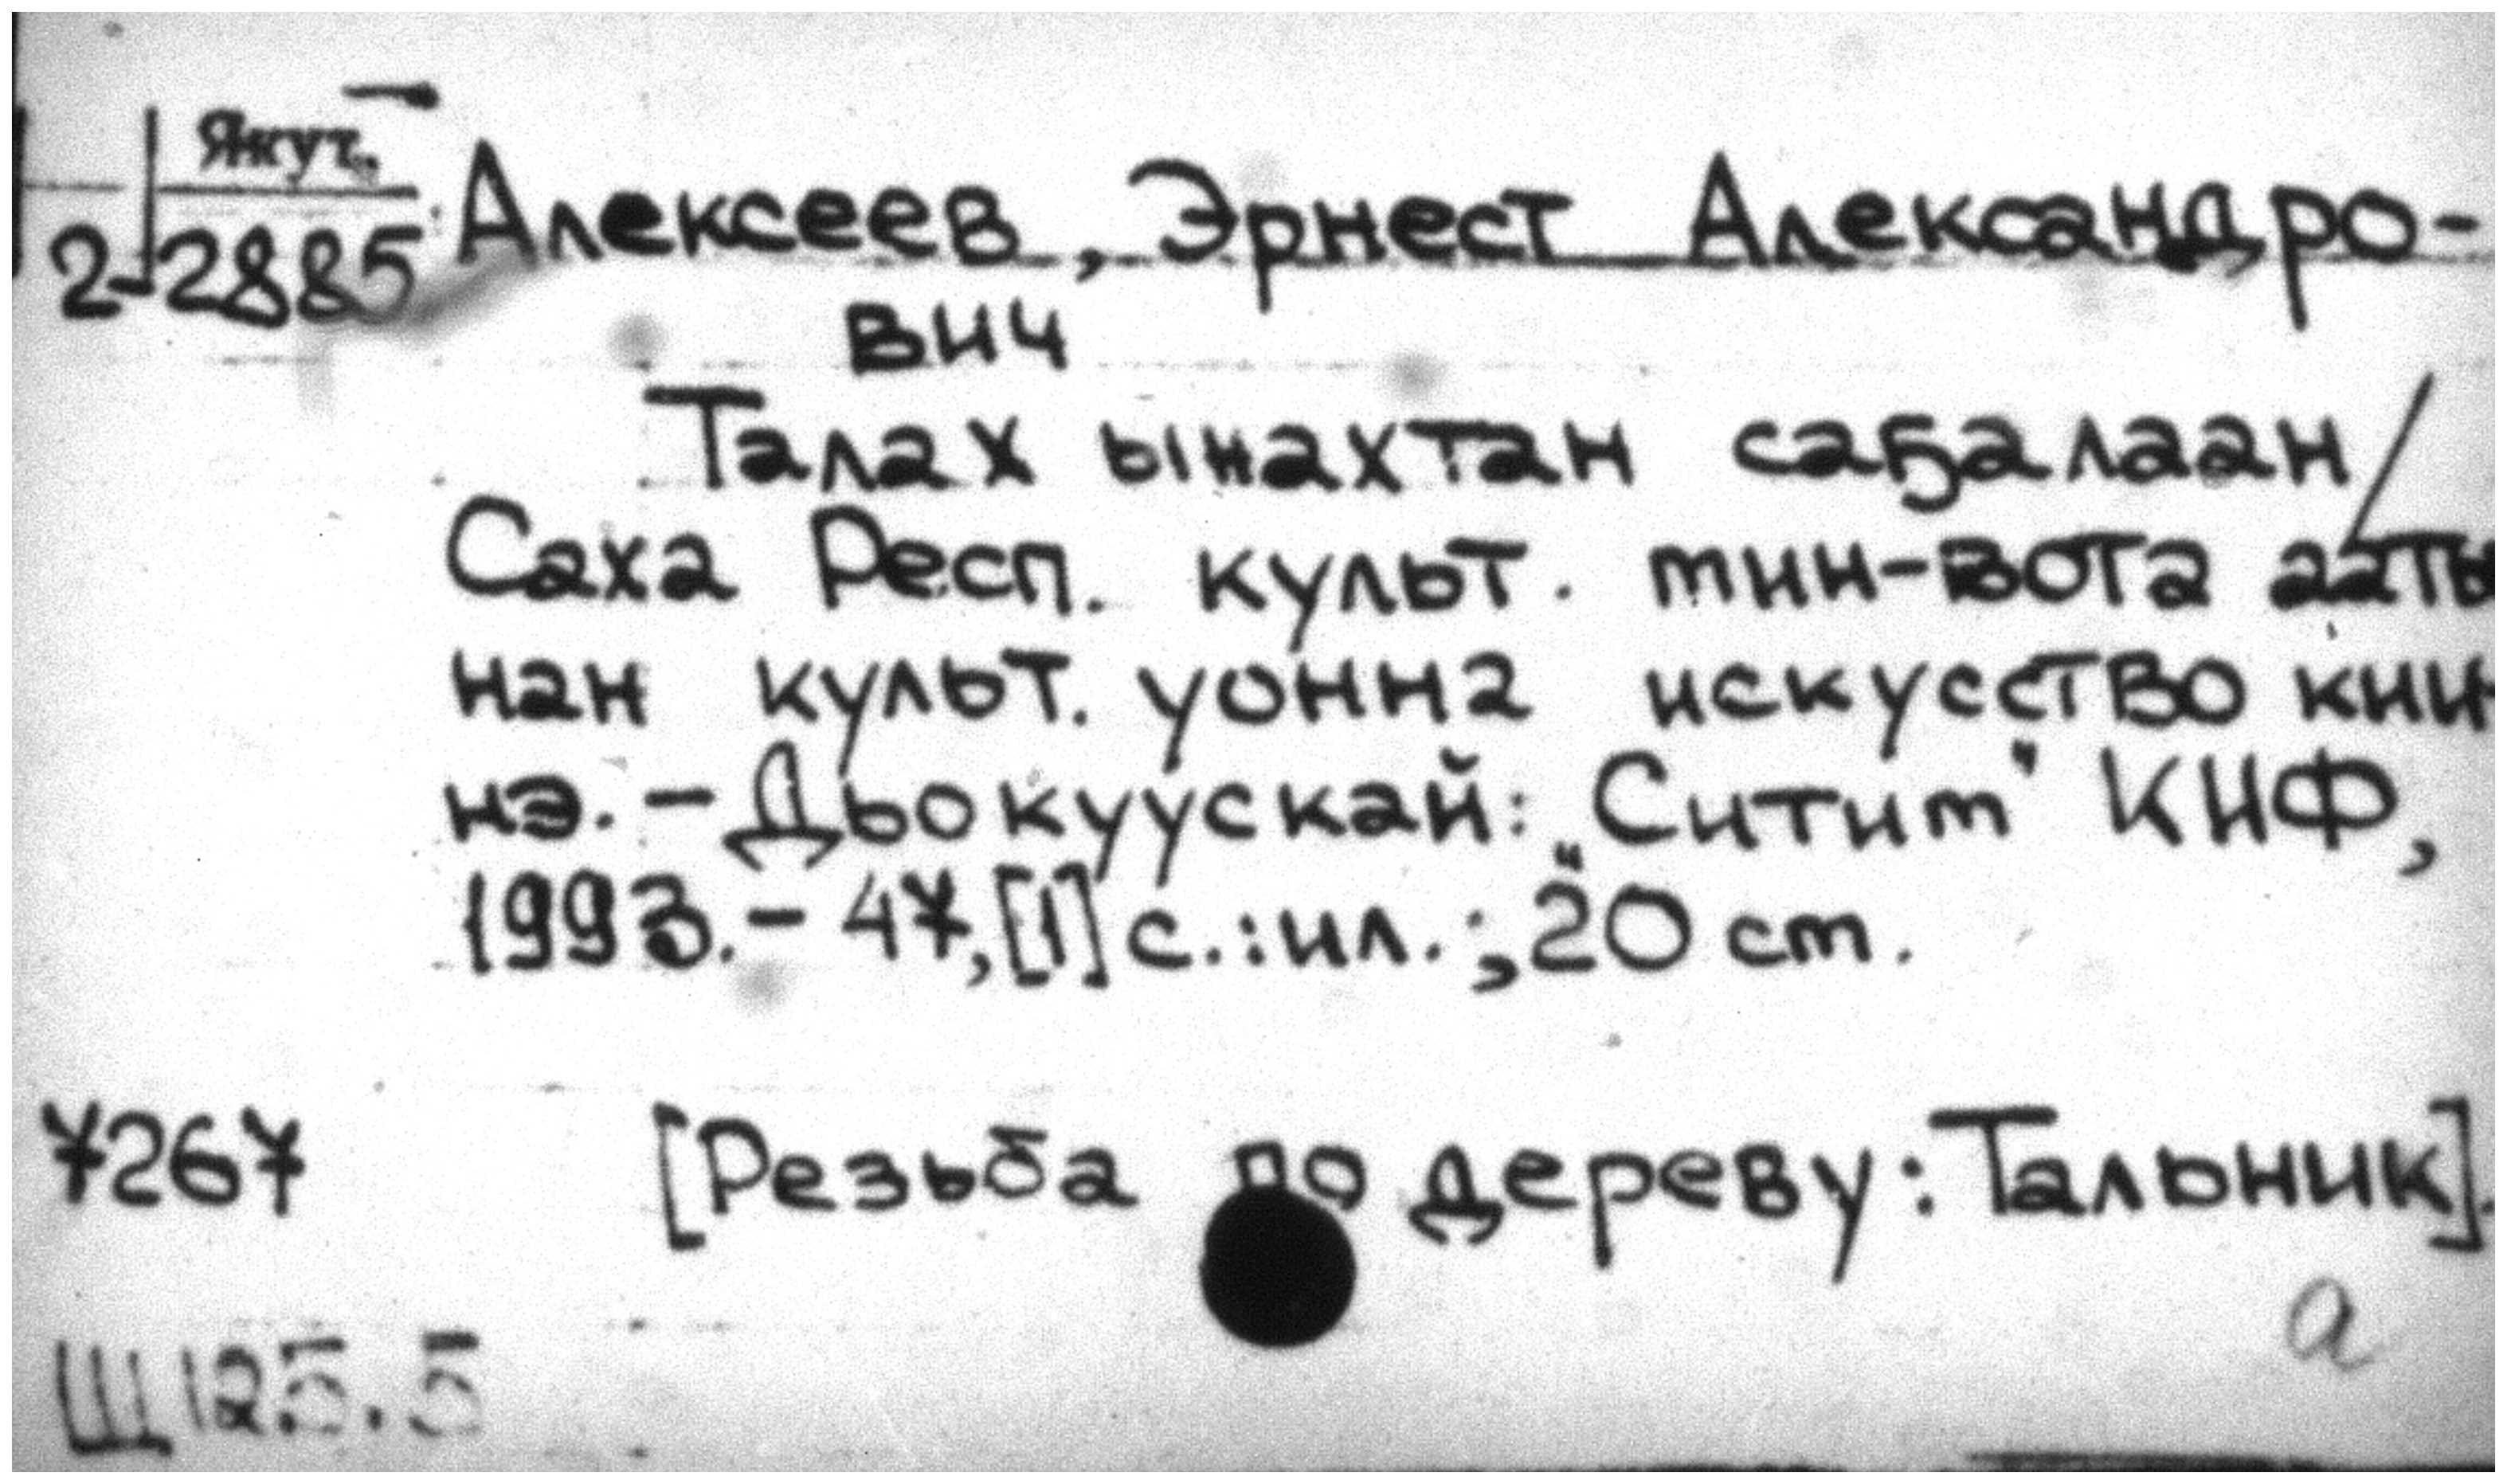 Якут.
2-2885
Алексеев, Эрнест Александро-
вич
Талах ынахтан саҕалаан /
Саха Респ. культ. мин-вота ааты
нан культ. уонна искусство кии-
нэ. - Дьокуускай: „Ситим" КИФ,
1993. - 47, [1] с.: ил.; 20 см.
7267
[Резьба по дереву: Тальник].
а
Щ125.5